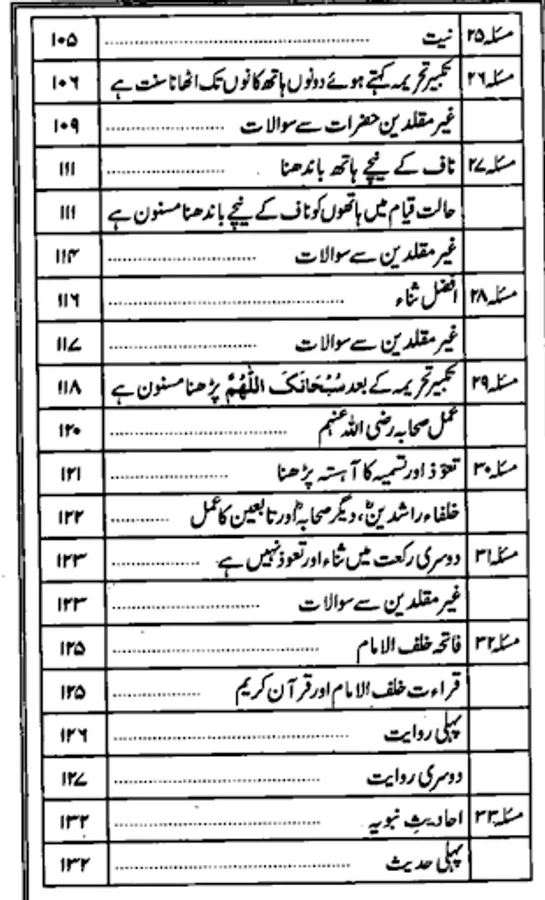 مسئلہ ۲۵ نیت ۱۰۵
مسئلہ ۲۶ تکبیر تحریمہ کہتے ہوئے دونوں ہاتھ کانوں تک اٹھانا سنت ہے ۱۰۶
غیر مقلدین حضرات سے سوالات ۱۰۹
مسئلہ ۲۷ ناف کے نیچے ہاتھ باندھنا ۱۱۱
حالت قیام میں ہاتھوں کو ناف کے نیچے باندھنا مسنون ہے ۱۱۱
غیر مقلدین سے سوالات ۱۱۴
مسئلہ ۲۸ افضل ثناء ۱۱۶
غیر مقلدین سے سوالات ۱۱۷
مسئلہ ۲۹ تکبیر تحریمہ کے بعد سُبْحَانَکَ اللّٰھُمَّ پڑھنا مسنون ہے ۱۱۸
عمل صحابہ رضی اللہ عنہم ۱۲۰
مسئلہ ۳۰ تعوّذ اور تسمیہ کا آہستہ پڑھنا ۱۲۱
خلفاء راشدینؓ، دیگر صحابہؓ اور تابعین کا عمل ۱۲۲
مسئلہ ۳۱ دوسری رکعت میں ثناء اور تعوذ نہیں ہے ۱۲۳
غیر مقلدین سے سوالات ۱۲۳
مسئلہ ۳۲ فاتحہ خلف الامام ۱۲۵
قراءت خلف الامام اور قرآن کریم ۱۲۵
پہلی روایت ۱۲۶
دوسری روایت ۱۲۷
مسئلہ ۳۳ احادیثِ نبویہ ۱۳۲
پہلی حدیث ۱۳۲